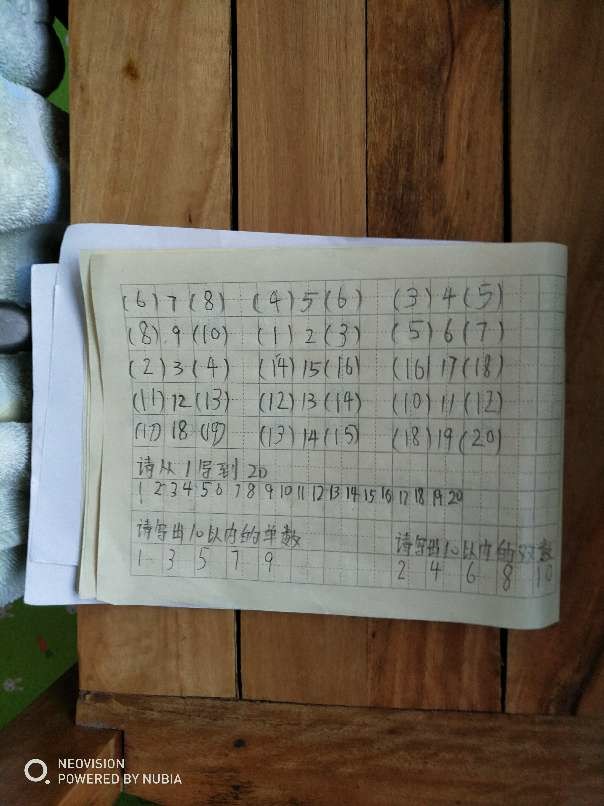 (6) 7 (8) (4) 5 (6) (3) 4 (5)
(8) 9 (10) (1) 2 (3) (5) 6 (7)
(2) 3 (4) (14) 15 (16) (16) 17 (18)
(11) 12 (13) (12) 13 (14) (10) 11 (12)
(17) 18 (19) (13) 14 (15) (18) 19 (20)
请从1写到20
1 2 3 4 5 6 7 8 9 10 11 12 13 14 15 16 17 18 19 20
请写出10以内的单数 请写出10以内的双数
1 3 5 7 9 2 4 6 8 10
NEOVISION
POWERED BY NUBIA